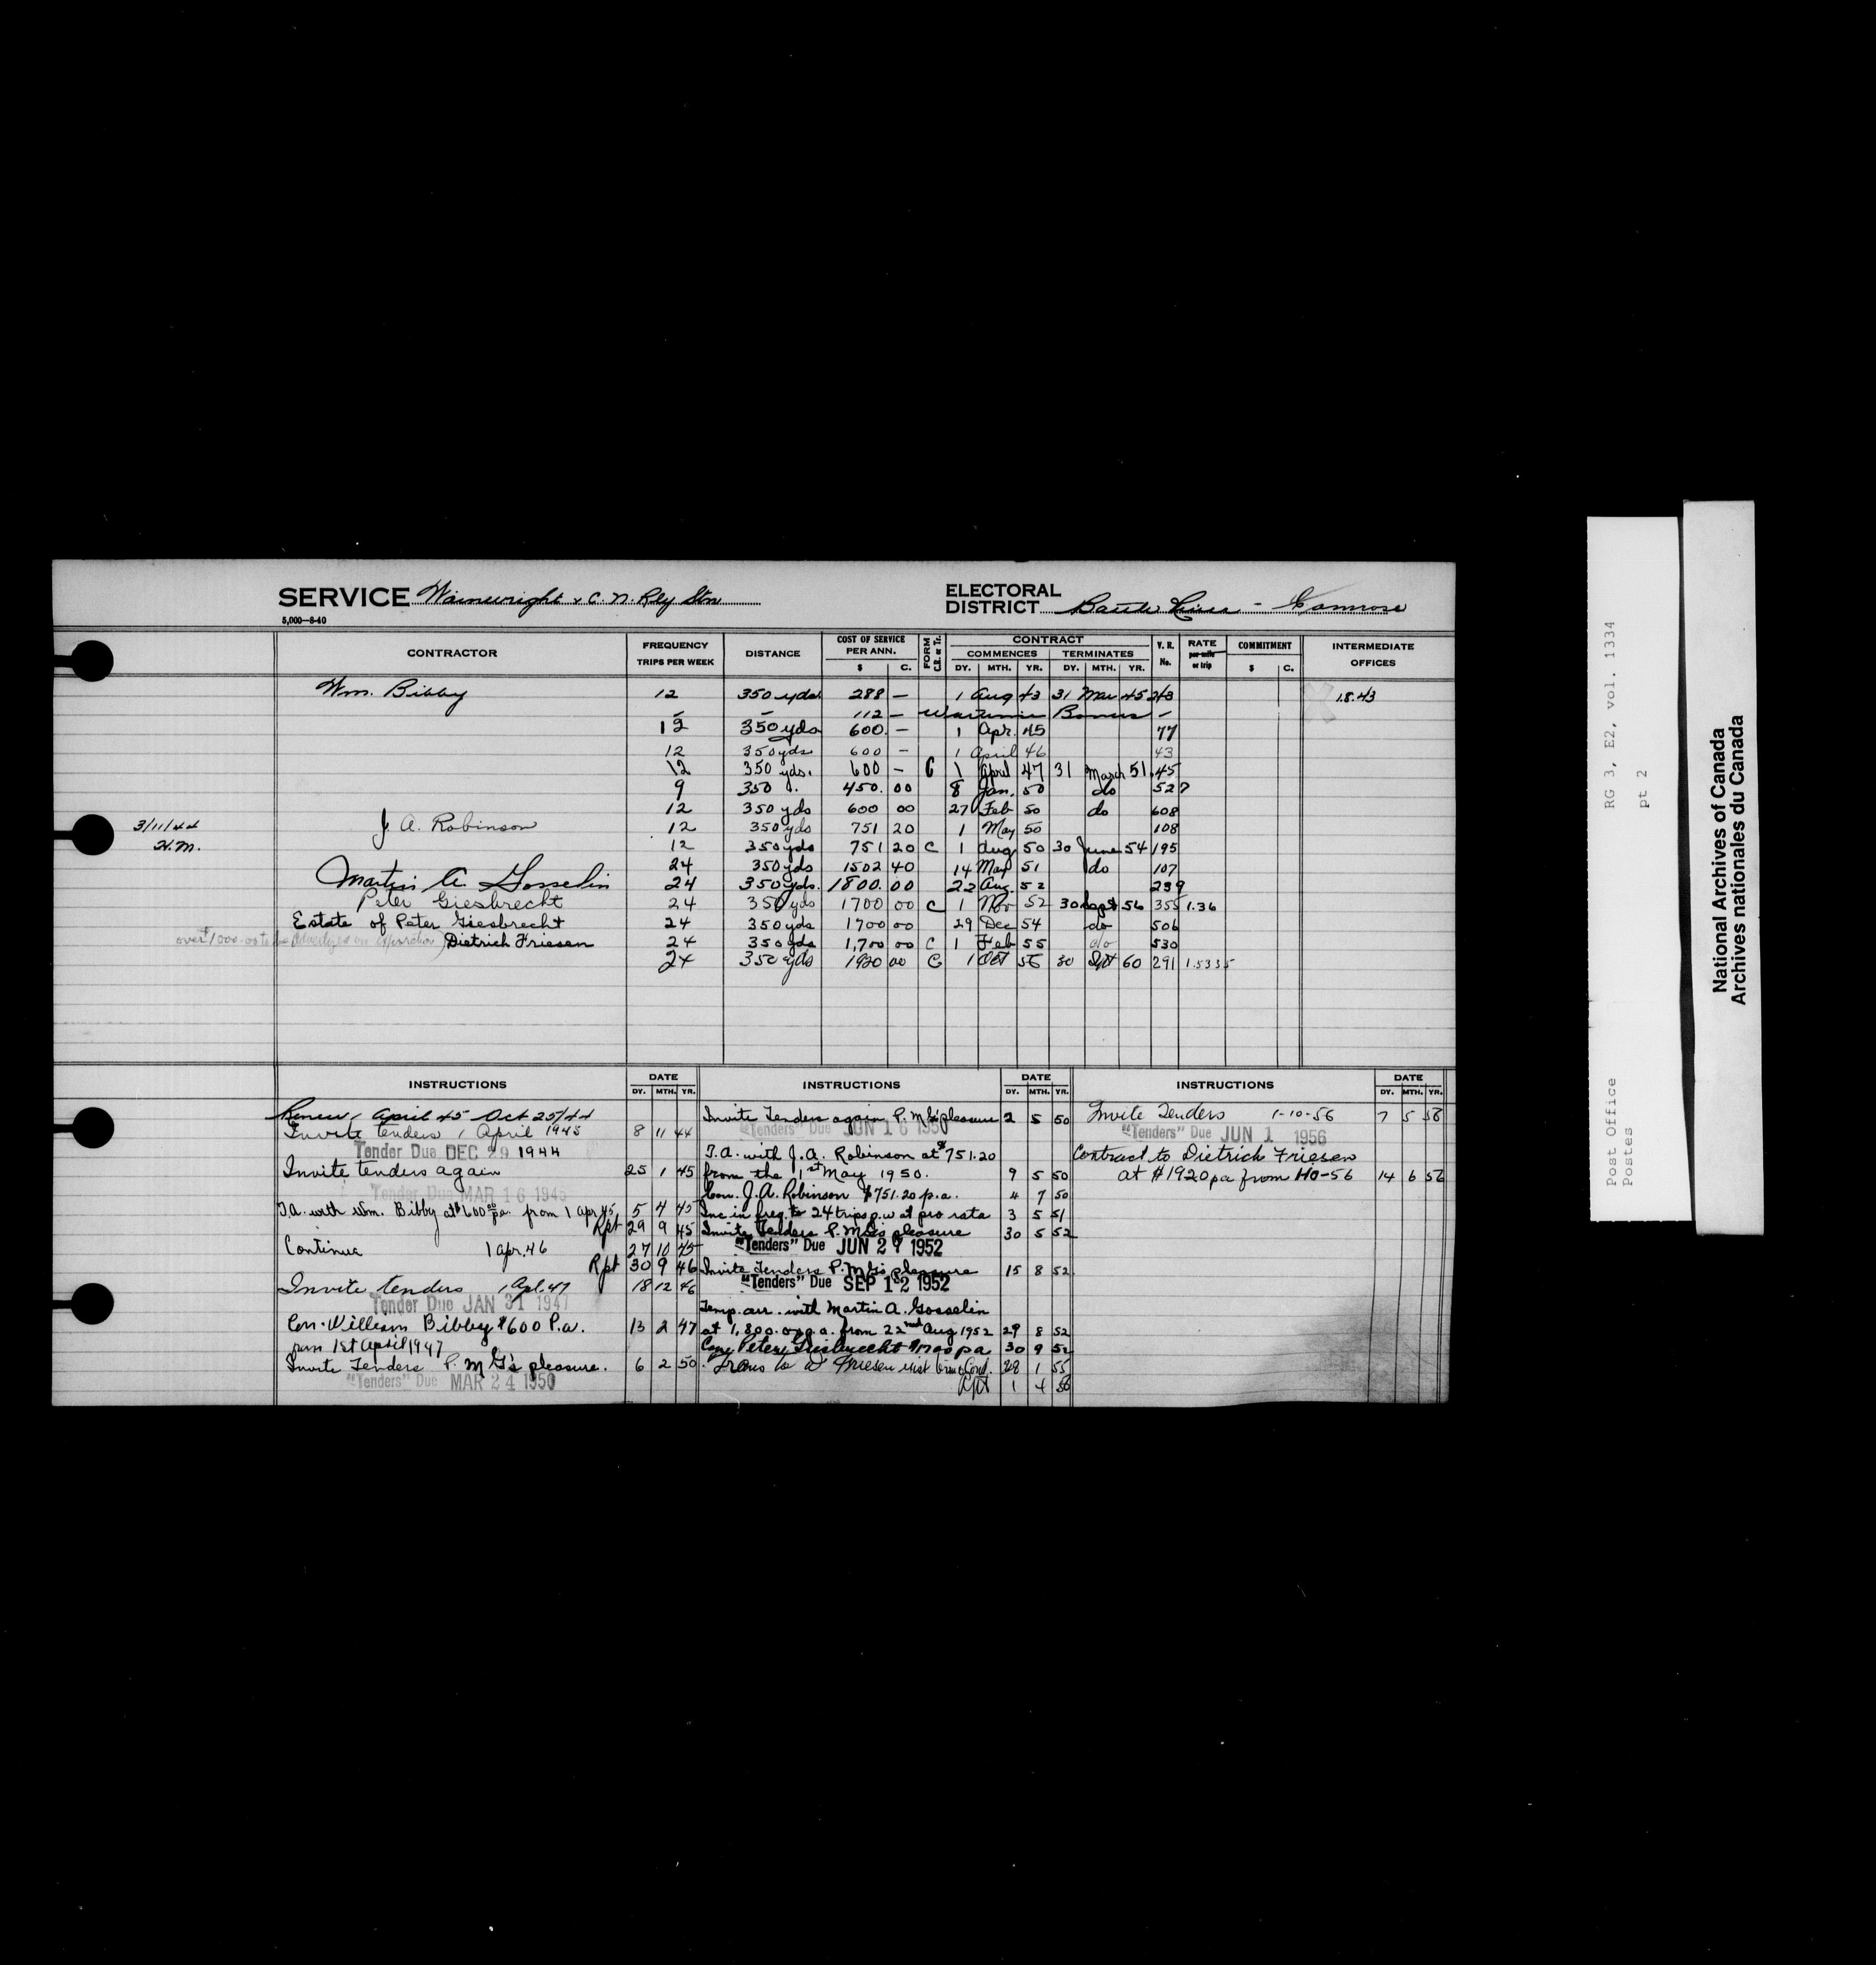 SERVICE Wainwright & C. N. Rly Stn
5,000—8-40
ELECTORAL
DISTRICT Battle River - Camrose
CONTRACTOR
FREQUENCY
TRIPS PER WEEK
DISTANCE
COST OF SERVICE
PER ANN.
$ C.
FORM
C.R. or Tr.
CONTRACT
COMMENCES TERMINATES
DY. MTH. YR. DY. MTH. YR.
V. R.
No.
RATE
per mile
or trip
COMMITMENT
$ C.
INTERMEDIATE
OFFICES
Wm. Bibby 12 350 yds 288 — 1 Aug 43 31 Mar 45 243 1.8.43
— — 112 — Wartime Bonus —
12 350 yds 600 — 1 Apr. 45 77
12 350 yds 600 — 1 April 46 43
12 350 yds. 600 — C 1 April 47 31 March 51 45
9 350 . 450. 00 8 Jan. 50 do 527
12 350 yds 600 00 27 Feb 50 do 608
3/11/44 J. A. Robinson 12 350 yds 751 20 1 May 50 108
H.M. 12 350 yds 751 20 C 1 Aug 50 30 June 54 195
24 350 yds 1502 40 14 May 51 do 107
Martin A. Gosselin 24 350 yds. 1800. 00 22 Aug. 52 239
Peter Giesbrecht 24 350 yds 1700 00 C 1 Nov 52 30 Sept 56 355 1.36
Estate of Peter Giesbrecht 24 350 yds 1700 00 29 Dec 54 do 506
over $1000.00 to be advertized on expiration) Dietrich Friesen 24 350 yds 1,700 00 C 1 Feb 55 do 530
24 350 yds 1920 00 C 1 Oct 56 30 Sept 60 291 1.5335
INSTRUCTIONS
DATE
DY. MTH. YR.
Renew 1 April 45 Oct 25/44
Invite tenders 1 April 1945 8 11 44
Tender Due DEC 29 1944
Invite tenders again 25 1 45
Tender Due MAR 16 1945
T.A. with Wm. Bibby at $600.00 pa. from 1 Apr 45, 5 4 45
Rpt 29 9 45
Continue 1 Apr. 46 27 10 45
Rpt 30 9 46
Invite tenders 1 Apl. 47 18 12 46
Tender Due JAN 31 1947
Con. William Bibby $600 P.a. 13 2 47
from 1st April 1947
Invite Tenders P.M.G's pleasure. 6 2 50
"Tenders" Due MAR 24 1950
INSTRUCTIONS
DATE
DY. MTH. YR.
Invite Tenders again P.M.G's pleasure 2 5 50
"Tenders" Due JUN 16 1950
T.A. with J.A. Robinson at $751.20
from the 1st May 1950. 9 5 50
Con. J.A. Robinson $751.20 p.a. 4 7 50
Inc in freq. to 24 trips p.w at pro rata 3 5 51
Invite Tenders P.M.G's pleasure 30 5 52
"Tenders" Due JUN 27 1952
Invite Tenders P.M.G's pleasure 15 8 52
"Tenders" Due SEP 12 1952
Temp. arr. with Martin A. Gosselin
at 1,800.00 p.a. from 22nd Aug 1952 29 8 52
Con. Peter Giesbrecht $1700 pa 30 9 52
Trans to D Friesen 28 1 55
Rpt 1 4 56
INSTRUCTIONS
DATE
DY. MTH. YR.
Invite Tenders 1-10-56 7 5 56
"Tenders" Due JUN 1 1956
Contract to Dietrich Friesen
at $1920 pa from 1-10-56 14 6 56
Post Office RG 3, E2, vol. 1334
Postes pt 2
National Archives of Canada
Archives nationales du Canada